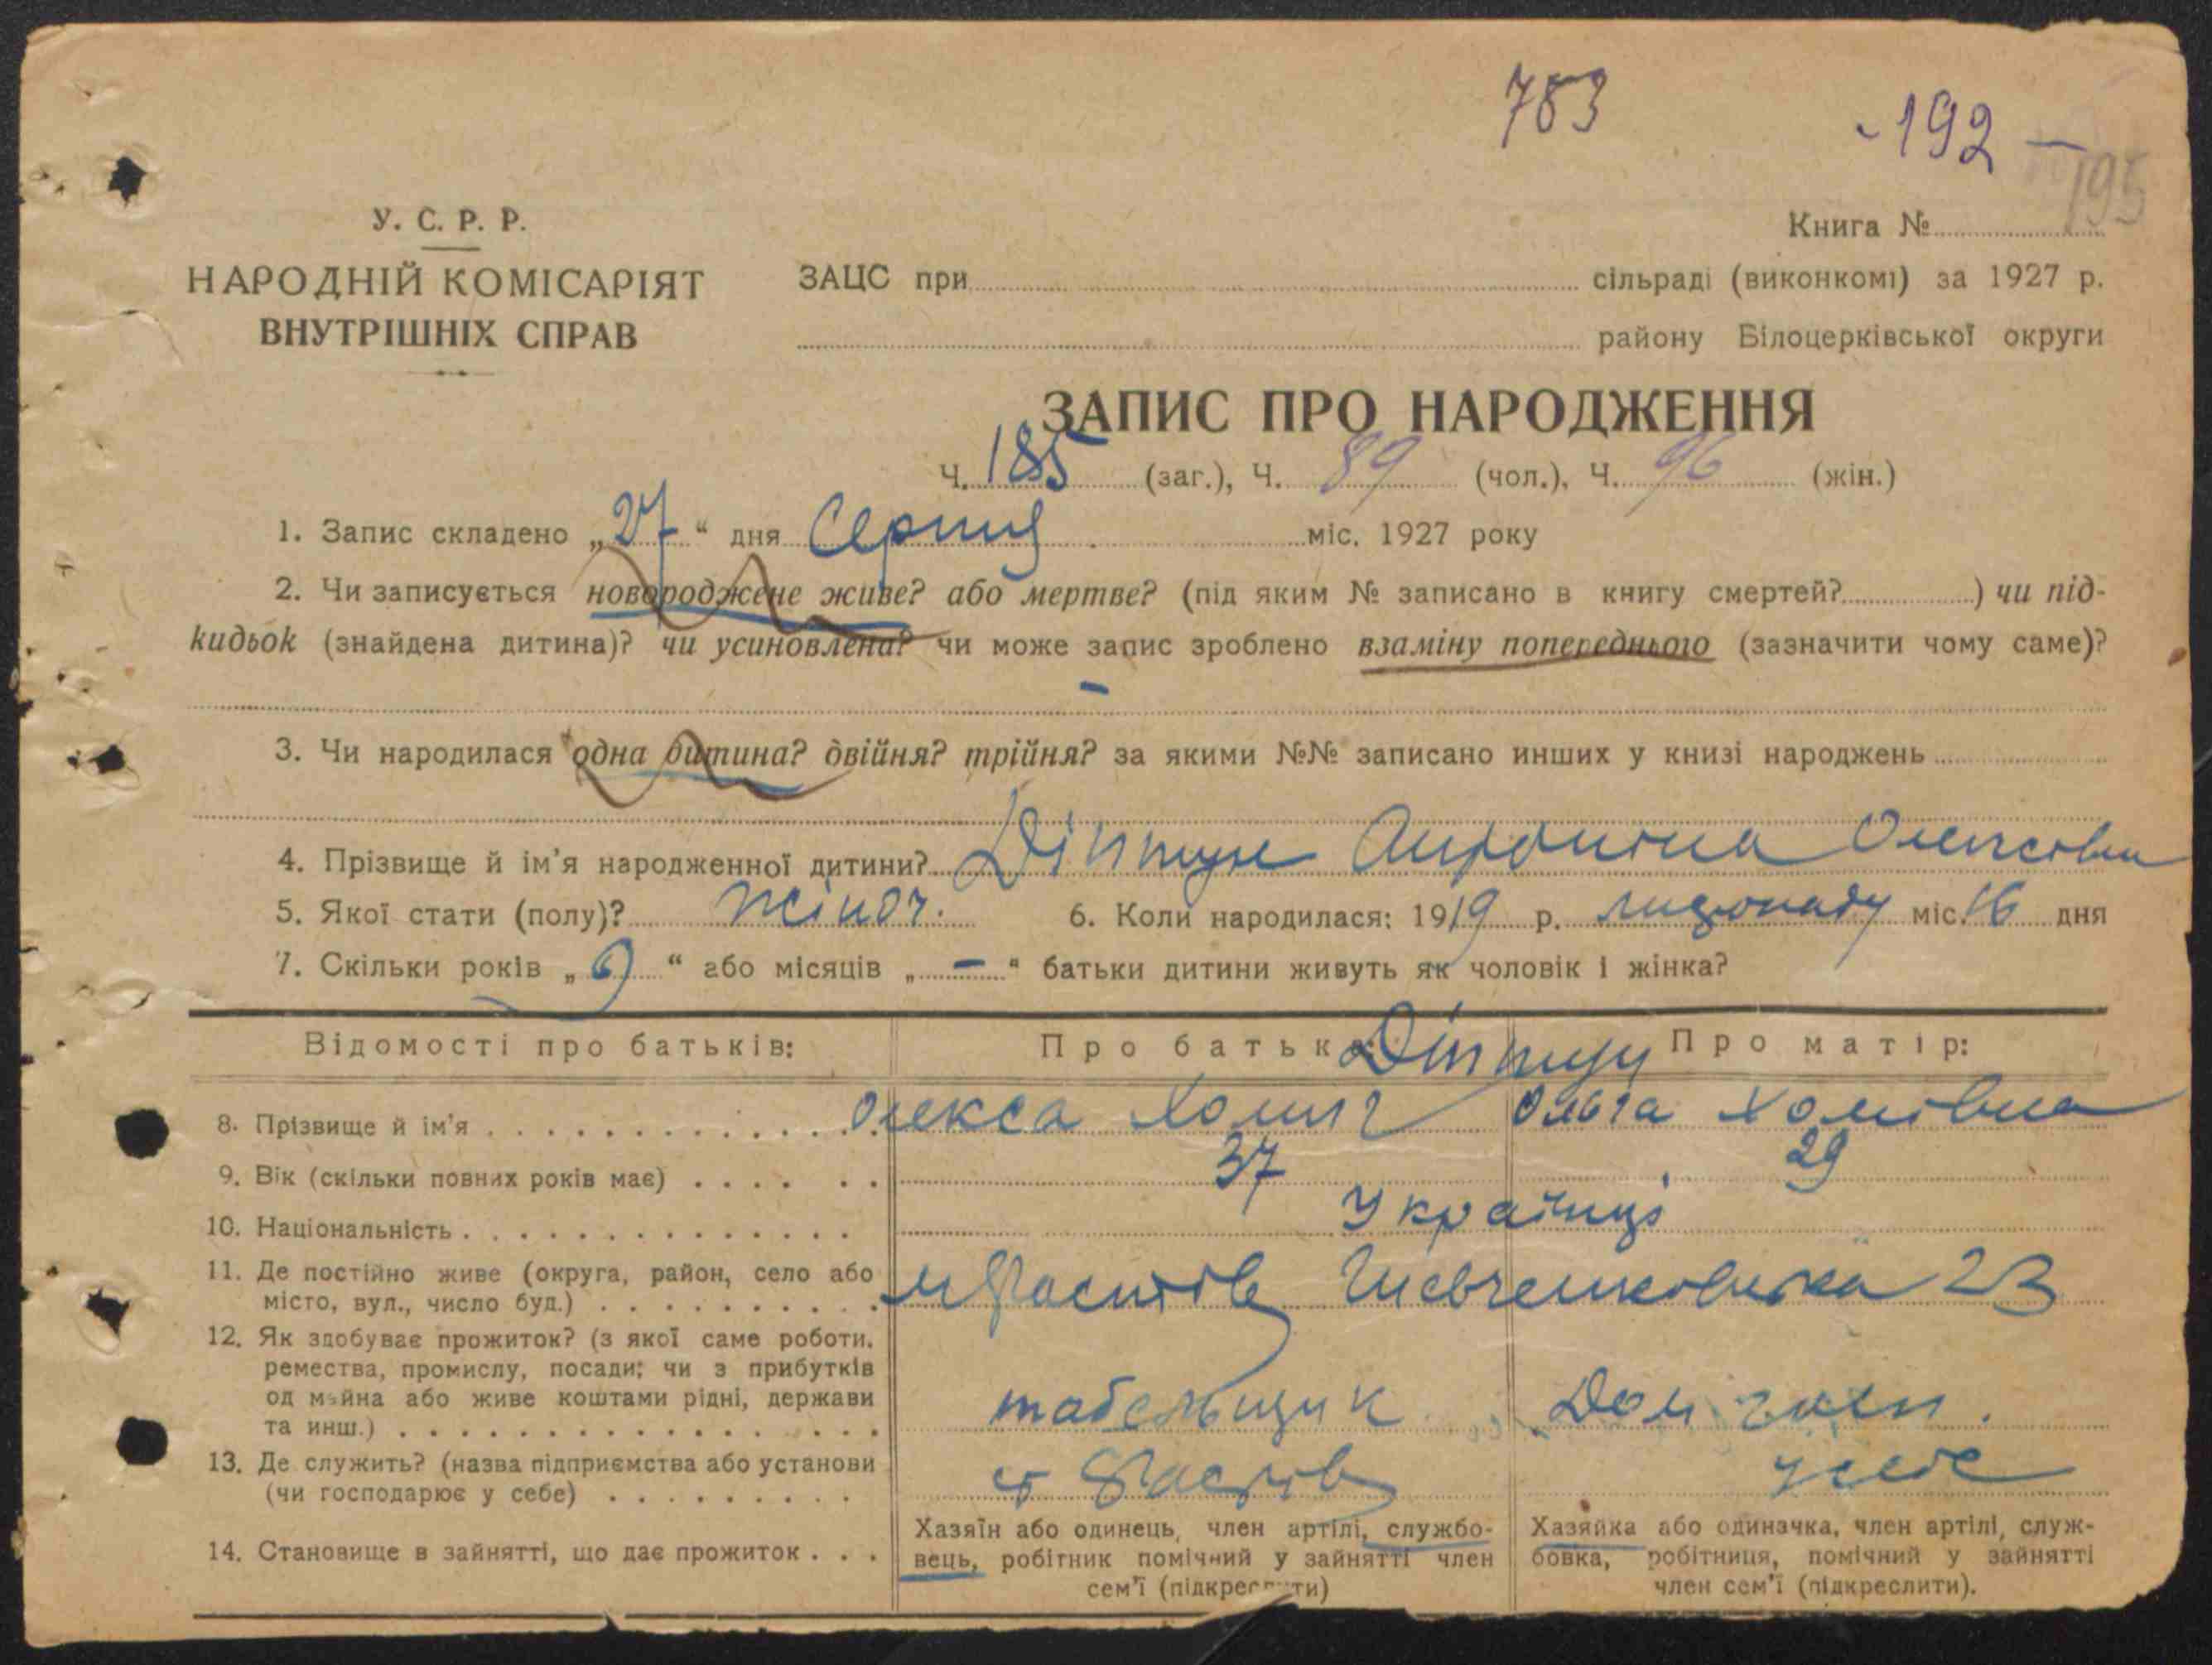 783
192 —
195
У. С. Р. Р.
Книга №
НАРОДНІЙ КОМІСАРІЯТ
ВНУТРІШНІХ СПРАВ
ЗАЦС при сільраді (виконкомі) за 1927 р.
району Білоцерківської округи
ЗАПИС ПРО НАРОДЖЕННЯ
Ч. 185 (заг.), Ч. 89 (чол.), Ч. 96 (жін.)
1. Запис складено „27“ дня Серпня міс. 1927 року
2. Чи записується новороджене живе? або мертве? (під яким № записано в книгу смертей? ) чи під-
кидьок (знайдена дитина)? чи усиновлена? чи може запис зроблено взаміну попереднього (зазначити чому саме)?
–
3. Чи народилася одна дитина? двійня? трійня? за якими №№ записано инших у книзі народжень
4. Прізвище й ім'я народженної дитини? Діптун Антоніна Олексівна
5. Якої стати (полу)? жіноч. 6. Коли народилася: 1919 р. листопаду міс. 16 дня
7. Скільки років „ “ або місяців „ – “ батьки дитини живуть як чоловік і жінка?
Відомості про батьків: Про батька: Про матір:
8. Прізвище й ім'я Олекса Хомич Ольга Хомівна
9. Вік (скільки повних років має) 37 29
10. Національність Українці
11. Де постійно живе (округа, район, село або
місто, вул., число буд.) м Фастів Шевченківська 23
12. Як здобуває прожиток? (з якої саме роботи,
ремества, промислу, посади; чи з прибутків
од майна або живе коштами рідні, держави
та инш.) табельщик Дом
13. Де служить? (назва підприємства або установи
(чи господарює у себе) ст Фастів
14. Становище в зайнятті, що дає прожиток
Хазяїн або одинець, член артілі, службо-
вець, робітник помічний у зайнятті член
сем'ї (підкреслити)
Хазяйка або одиначка, член артілі, служ-
бовка, робітниця, помічний у зайнятті
член сем'ї (підкреслити).